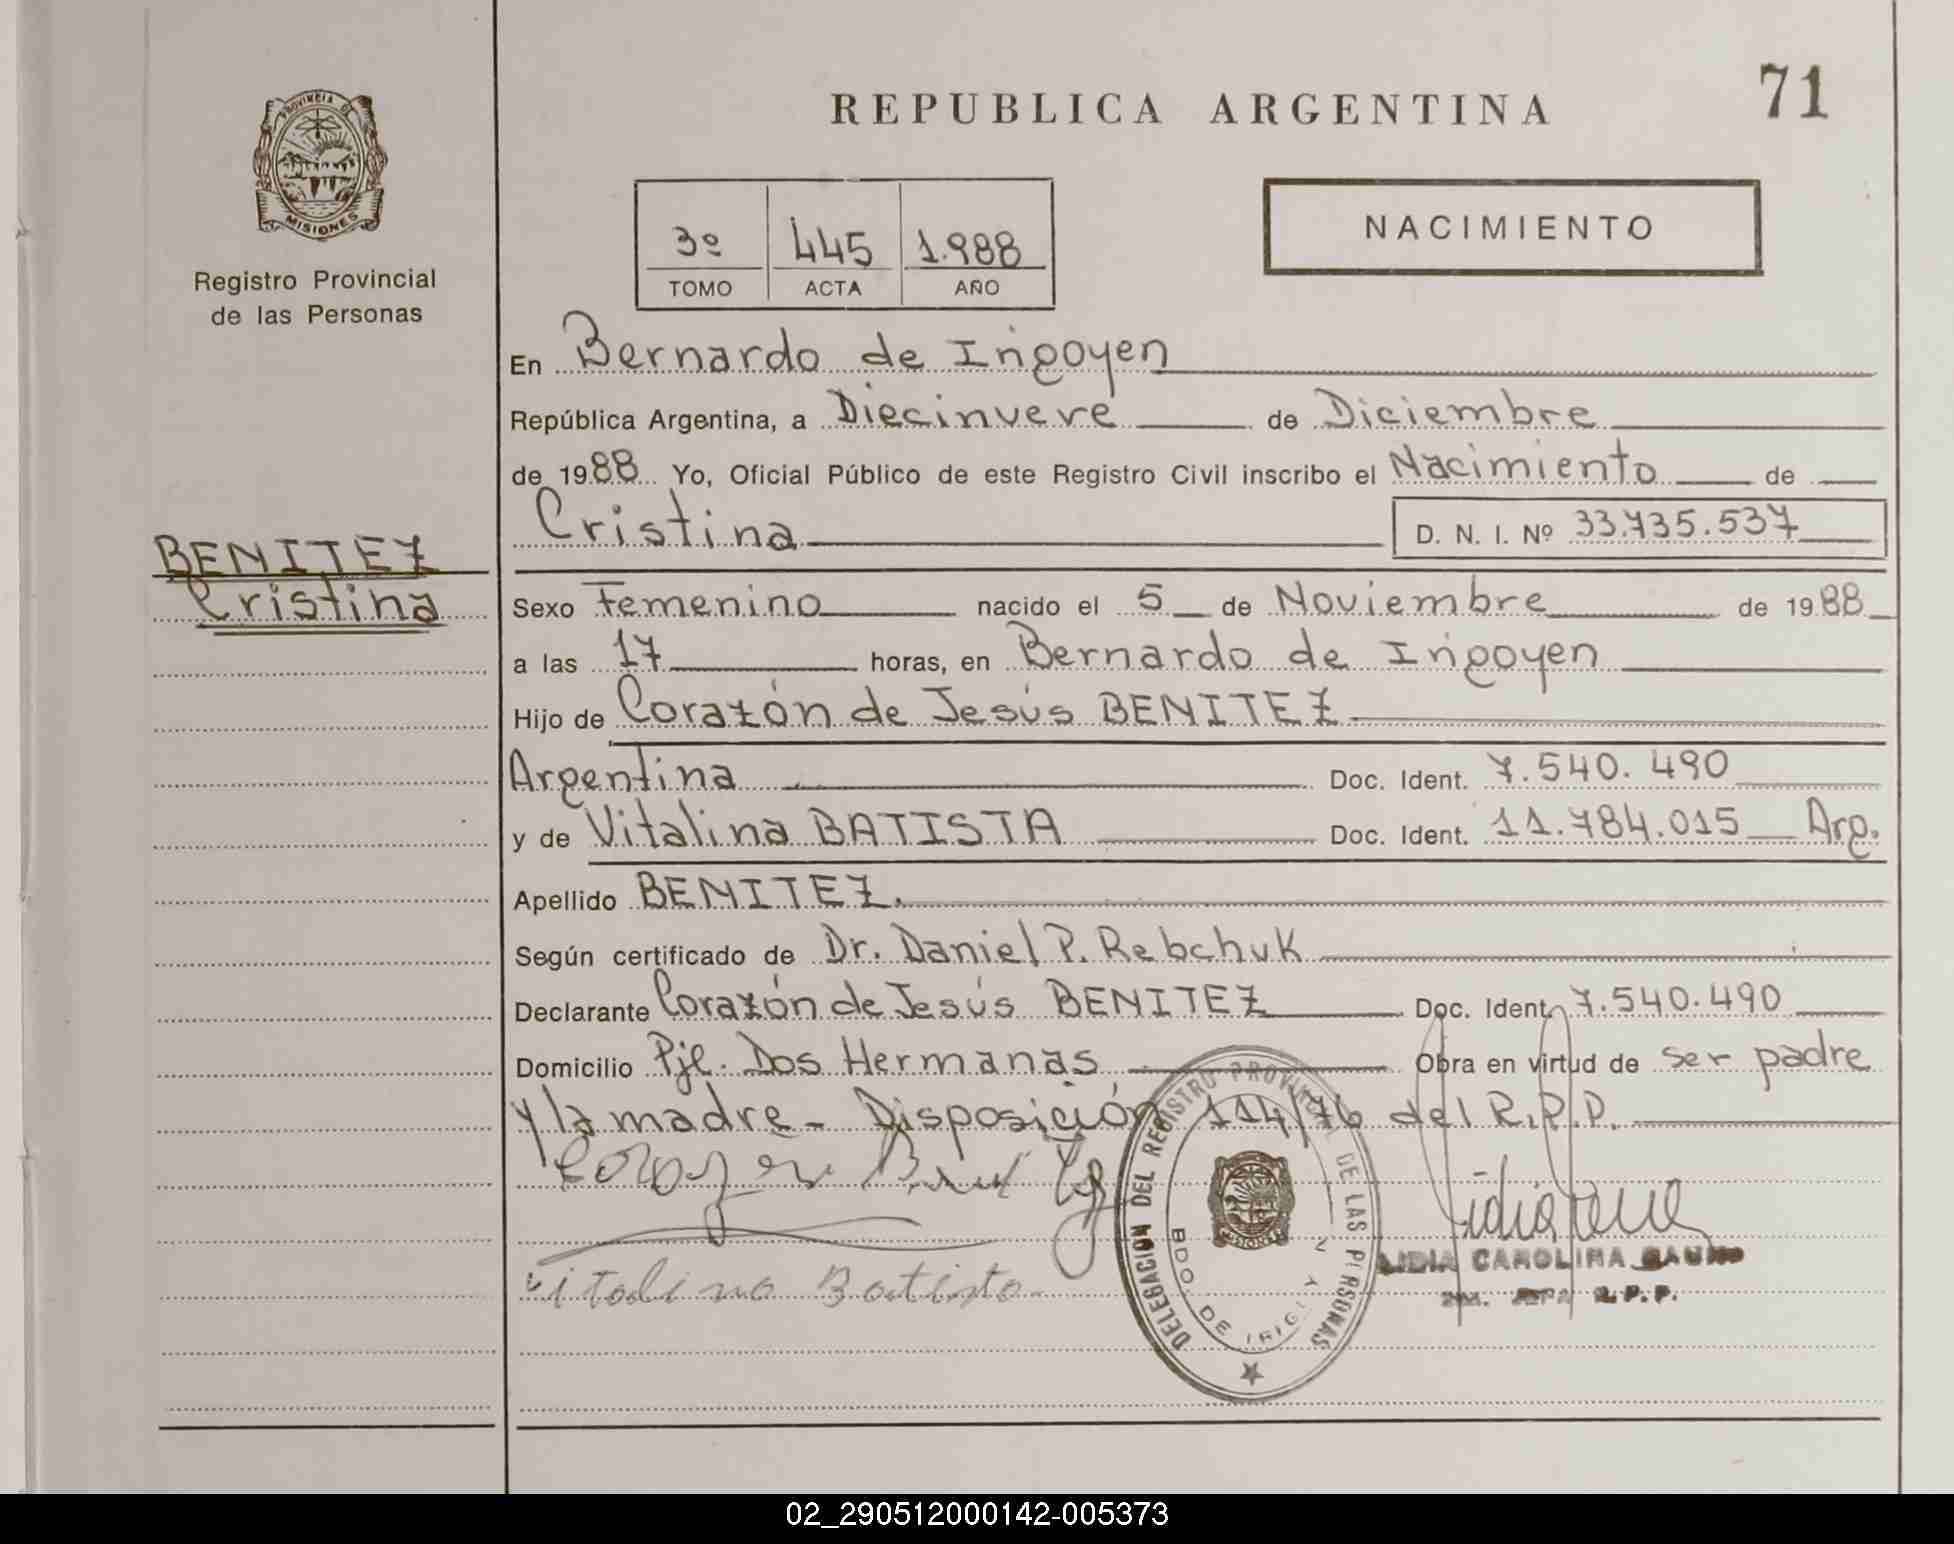 REPUBLICA ARGENTINA
71
PROVINCIA DE
MISIONES
Registro Provincial
de las Personas
3º 445 1.988
TOMO ACTA AÑO
NACIMIENTO
En Bernardo de Irigoyen
República Argentina, a Diecinueve de Diciembre
de 1988 Yo, Oficial Público de este Registro Civil inscribo el Nacimiento de
Cristina D. N. I. Nº 33.735.537
BENITEZ
Cristina
Sexo Femenino nacido el 5 de Noviembre de 1988
a las 17 horas, en Bernardo de Irigoyen
Hijo de Corazón de Jesús BENITEZ
Argentina Doc. Ident. 7.540.490
y de Vitalina BATISTA Doc. Ident. 11.784.015 Arg.
Apellido BENITEZ.
Según certificado de Dr. Daniel P. Rebchuk
Declarante Corazón de Jesús BENITEZ Doc. Ident. 7.540.490
Domicilio Pje. Dos Hermanas Obra en virtud de ser padre
y la madre - Disposición 114/76 del R.P.P.
Vitalina Batista
DELEGACION DEL REGISTRO PROVINCIAL DE LAS PERSONAS
BDO. DE IRIGOYEN
MISIONES
LIDIA CAROLINA
R.P.P.
02_290512000142-005373